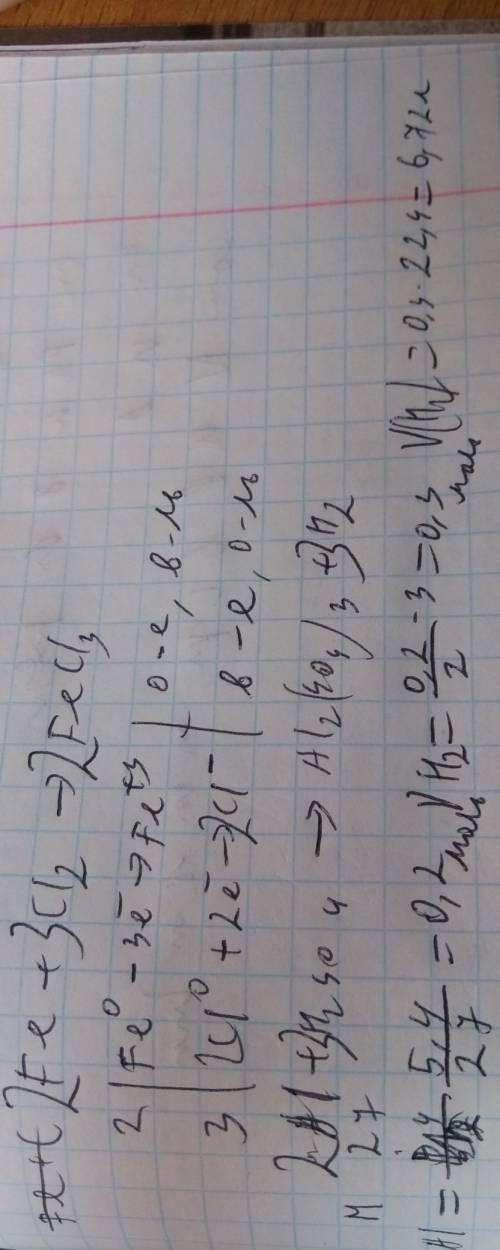 2Fe + 3Cl2 → 2FeCl3
2 | Fe⁰ - 3ē → Fe⁺³ | о-е, в-ль
3 | 2Cl⁰ + 2ē → 2Cl⁻ | в-е, о-ль
2Al + 3H2SO4 → Al2(SO4)3 + 3H2
M 27
Al = 5,4/27 = 0,2 моль V H2 = 0,2/2 · 3 = 0,3 моль V(H2) = 0,3 · 22,4 = 6,72л